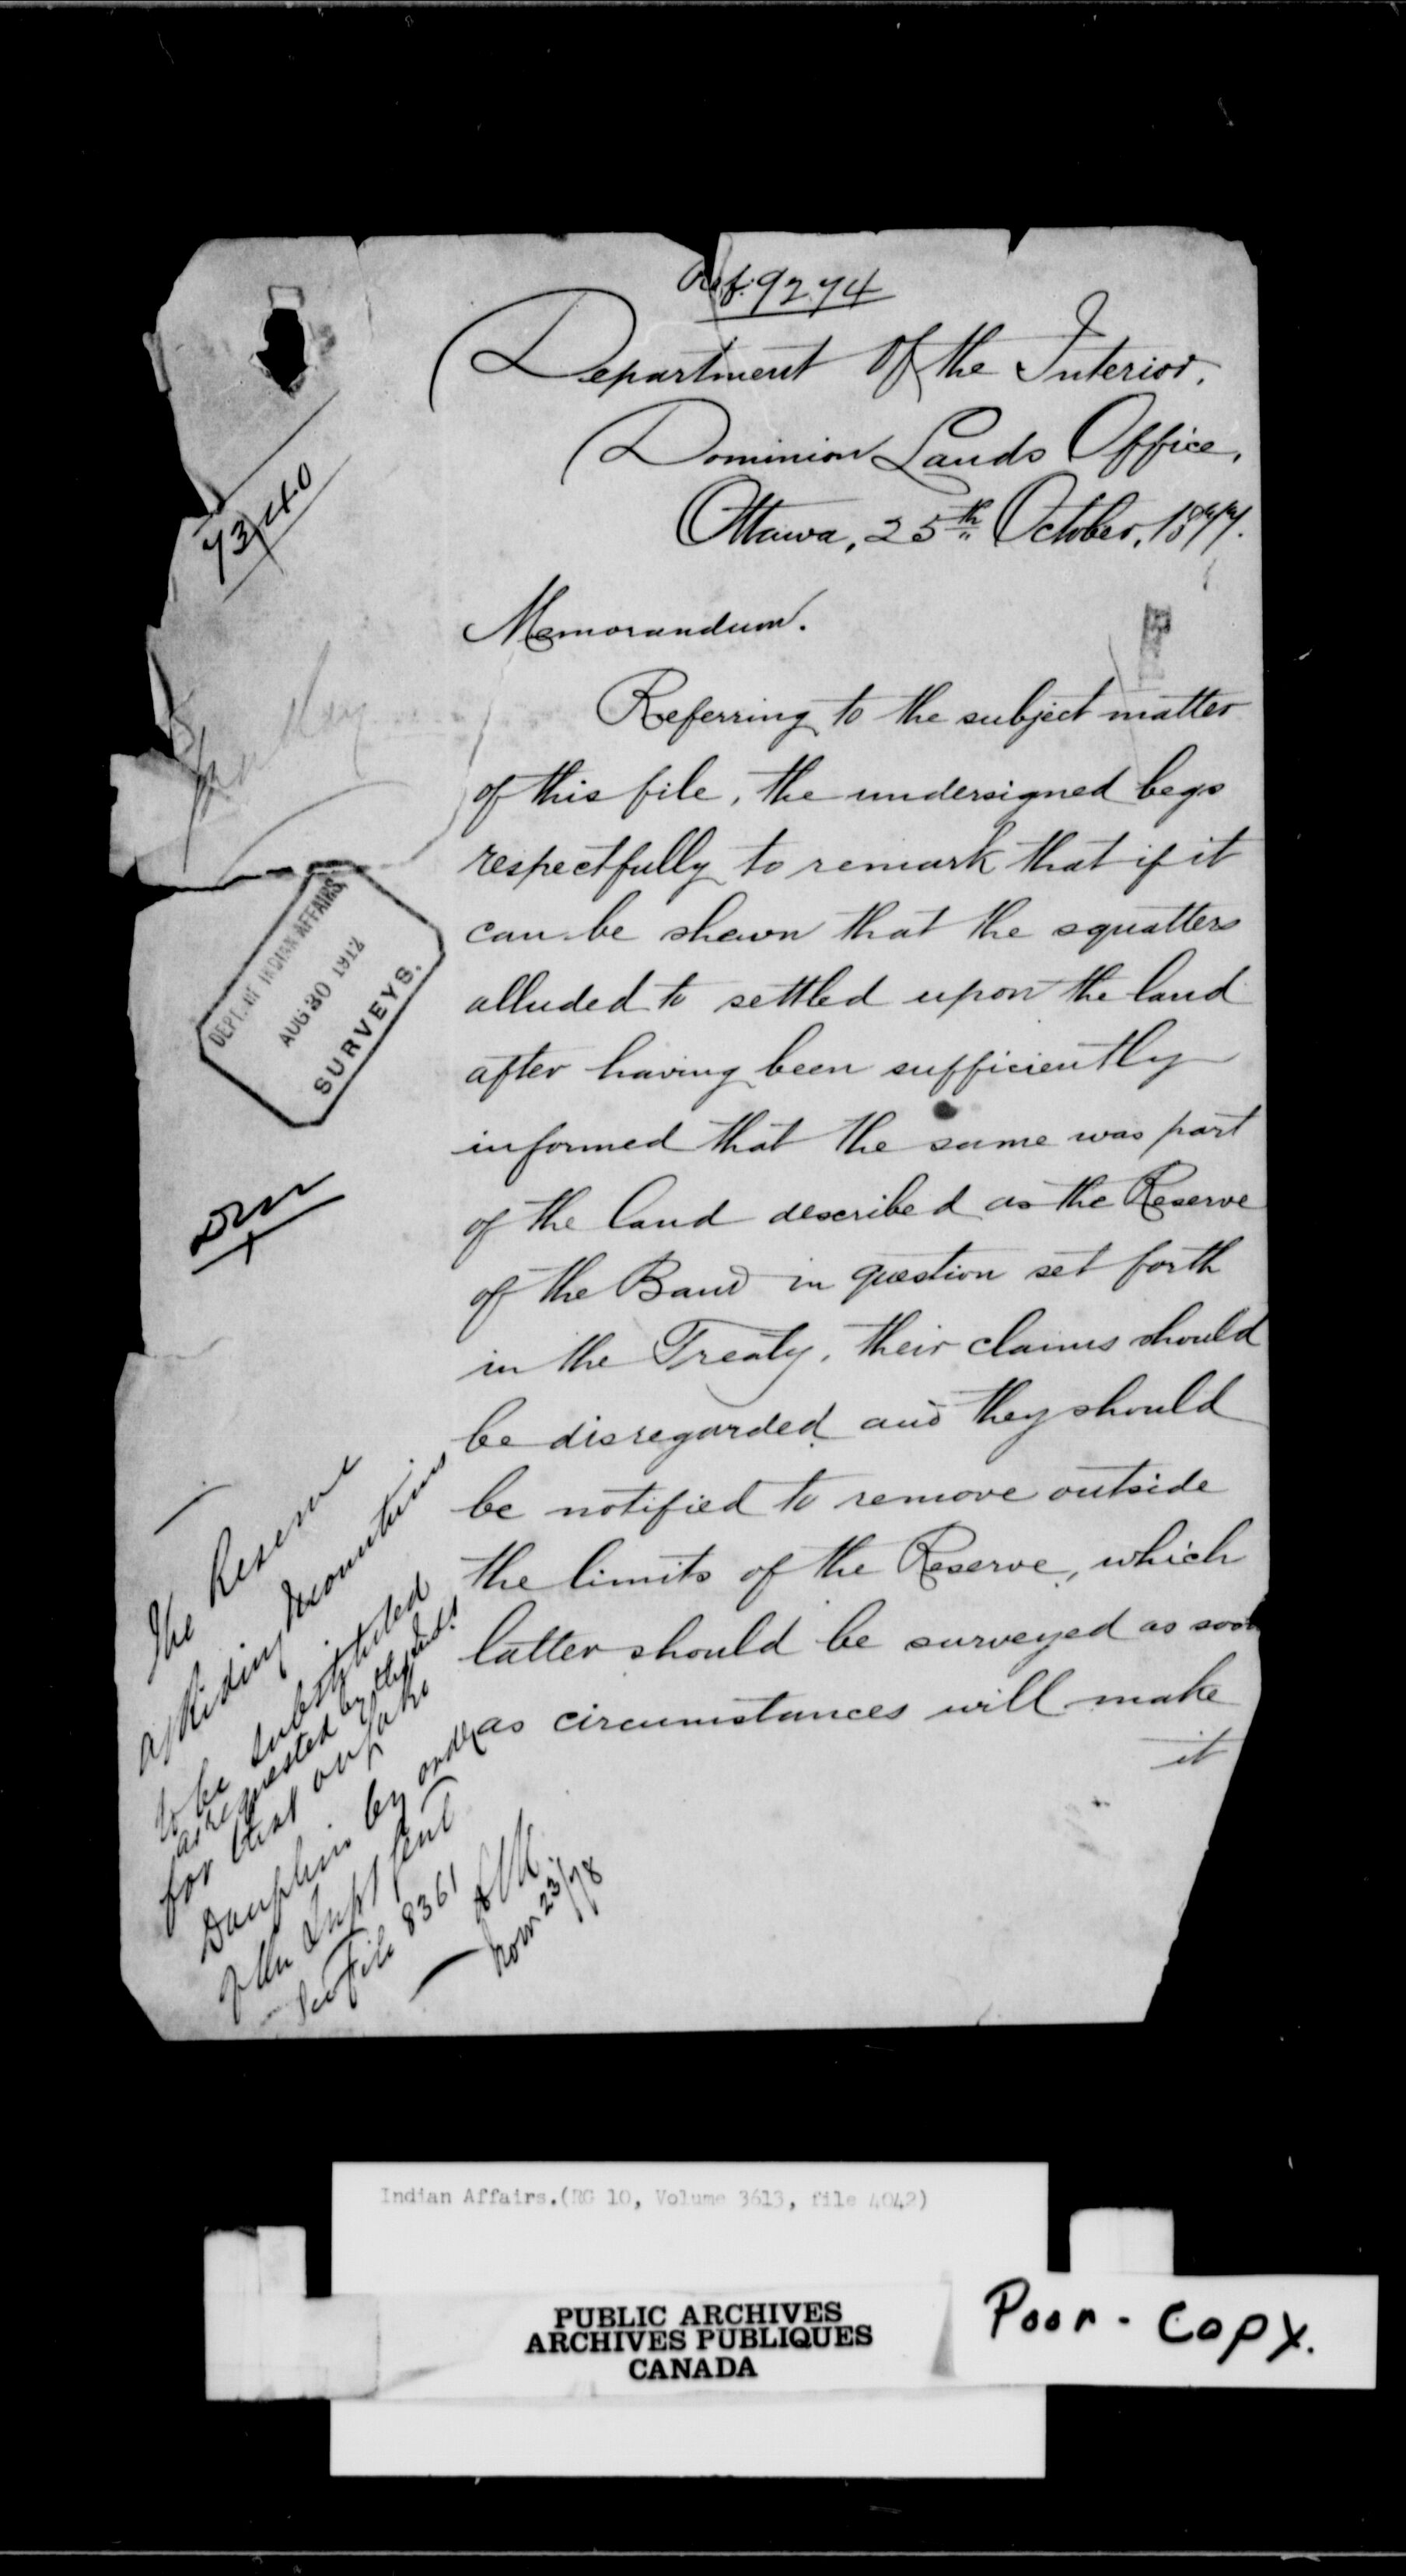 Ref. 9274
Department Of the Interior.
Dominion Lands Office,
Ottawa, 25th October, 1877.
73140
Memorandum.
Referring to the subject matter
of this file, the undersigned begs
respectfully to remark that if it
can be shewn that the squatters
alluded to settled upon the land
after having been sufficiently
informed that the same was part
of the land described as the Reserve
of the Band in question set forth
in the Treaty, their claims should
be disregarded and they should
be notified to remove outside
the limits of the Reserve, which
latter should be surveyed as soon
as circumstances will make
it
DEPT. OF INDIAN AFFAIRS,
AUG 30 1912
SURVEYS.
The Reserve
at Riding Mountains
to be substituted
as requested by the Inds.
for that on Lake
Dauphin by order
of the Supt Genl
See File 8361
Nov 23/78
Indian Affairs.(RG 10, Volume 3613, file 4042)
PUBLIC ARCHIVES
ARCHIVES PUBLIQUES
CANADA
Poor - Copy.